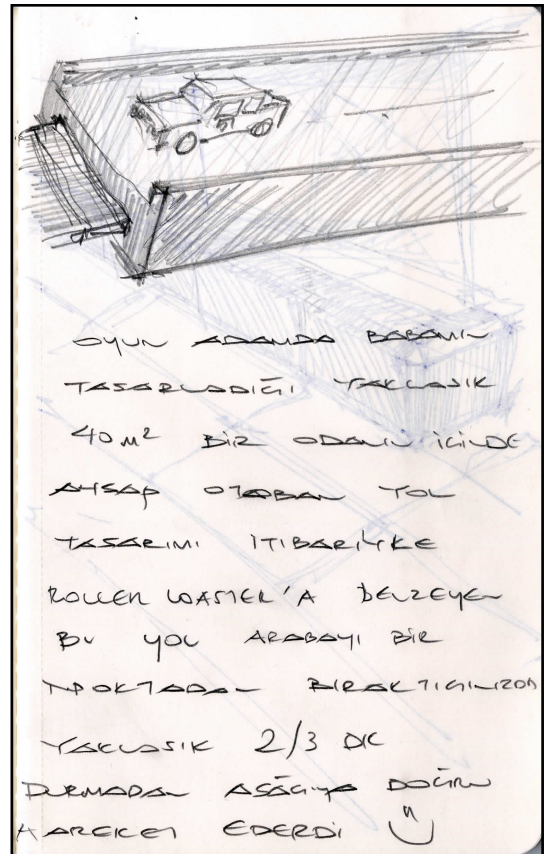 OYUN ADAMDA BABAMIN
TASARLADIĞI YAKLASIK
40 M² BİR ODANIN İCİNDE
AHSAP OTOBAN YOL
TASARIMI ITIBARİYKE
ROLLER COASTER'A BENZEYEN
BU YOL ARABAYI BİR
NPOKTADAN BIRAKTIGINIZDA
YAKLASIK 2/3 DK
DURMADAN ASAĞIYA DOĞRU
HAREKET EDERDİ